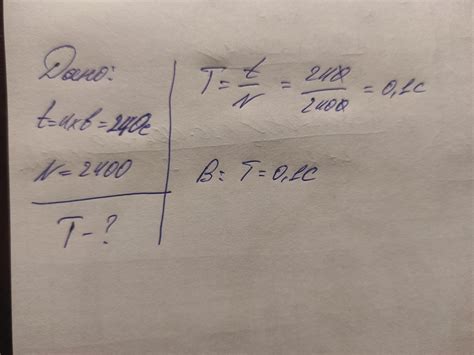 Дано:
t=4хв=240с
N=2400
T-?
T= t/N = 240/2400 = 0,1с
В: T=0,1с